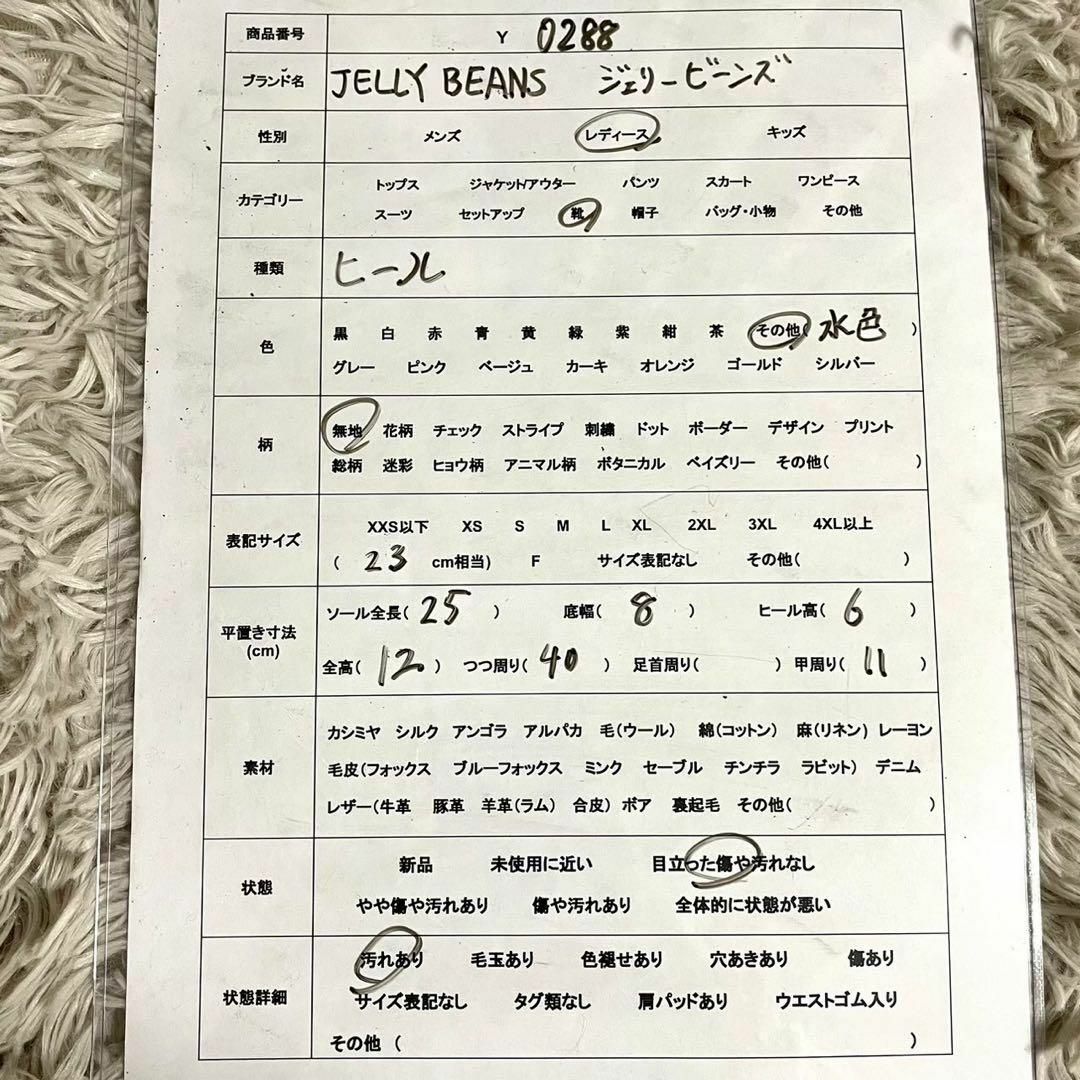 商品番号 Y 0288
ブランド名 JELLY BEANS ジェリービーンズ
性別 メンズ レディース キッズ
トップス ジャケット/アウター パンツ スカート ワンピース
カテゴリー
スーツ セットアップ 靴 帽子 バッグ・小物 その他
種類 ヒール
黒 白 赤 青 黄 緑 紫 紺 茶 その他( 水色 )
色
グレー ピンク ベージュ カーキ オレンジ ゴールド シルバー
無地 花柄 チェック ストライプ 刺繍 ドット ボーダー デザイン プリント
柄
総柄 迷彩 ヒョウ柄 アニマル柄 ボタニカル ペイズリー その他( )
XXS以下 XS S M L XL 2XL 3XL 4XL以上
表記サイズ
( 23 cm相当) F サイズ表記なし その他( )
ソール全長( 25 ) 底幅( 8 ) ヒール高( 6 )
平置き寸法
(cm)
全高( 12 ) つつ周り( 40 ) 足首周り( ) 甲周り( 11 )
カシミヤ シルク アンゴラ アルパカ 毛(ウール) 綿(コットン) 麻(リネン) レーヨン
素材 毛皮(フォックス ブルーフォックス ミンク セーブル チンチラ ラビット) デニム
レザー(牛革 豚革 羊革(ラム) 合皮) ボア 裏起毛 その他( )
新品 未使用に近い 目立った傷や汚れなし
状態
やや傷や汚れあり 傷や汚れあり 全体的に状態が悪い
汚れあり 毛玉あり 色褪せあり 穴あきあり 傷あり
状態詳細 サイズ表記なし タグ類なし 肩パッドあり ウエストゴム入り
その他 ( )